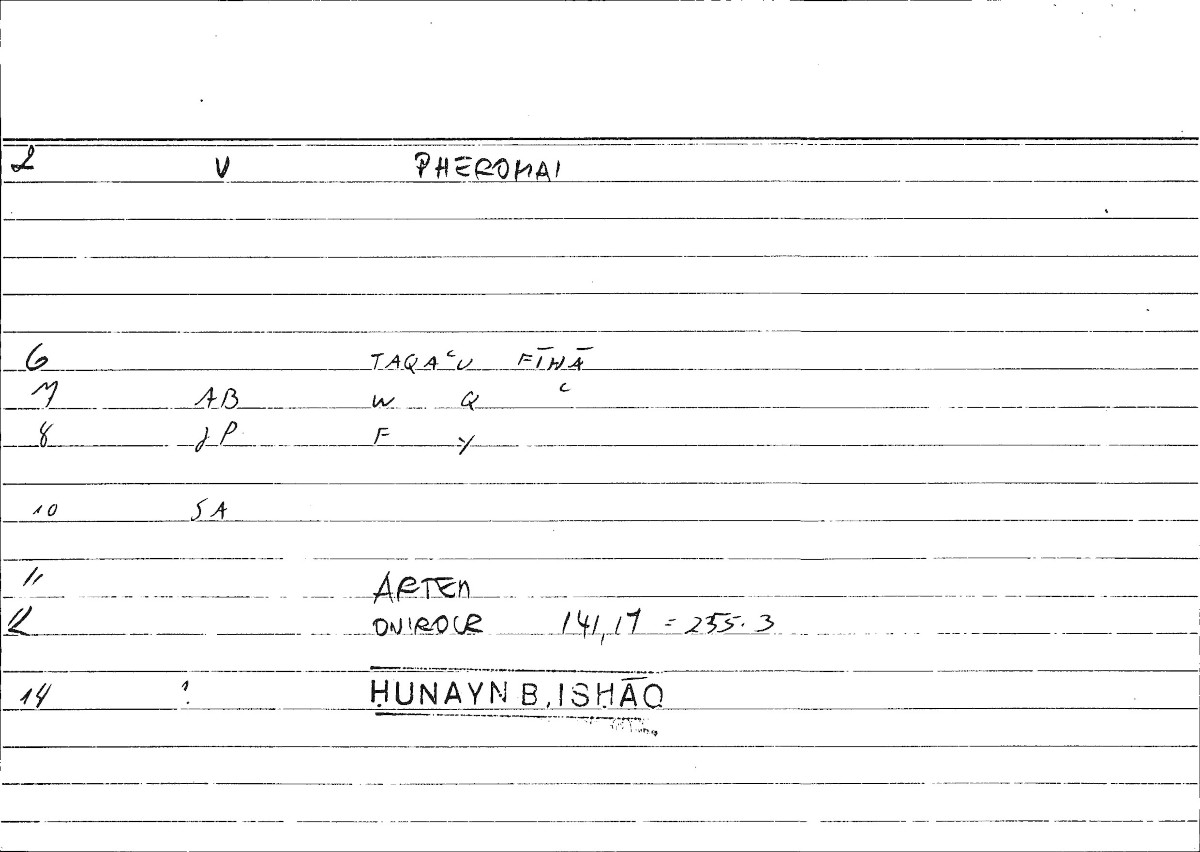 2 V PHEROMAI
6 TAQAʿU FĪHĀ
7 AB W Q ʿ
8 JP F Y
10 SA
11 ARTEM
12 ONIROCR 141,17 = 255.3
14 ? ḤUNAYN B. ISḤĀQ